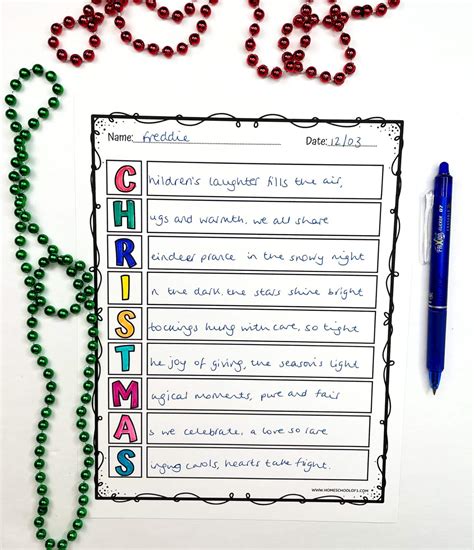 Name: Freddie Date: 12/03
Children's laughter fills the air,
Hugs and warmth, we all share
Reindeer prance in the snowy night
In the dark, the stars shine bright
Stockings hung with care, so tight
The joy of giving, the season's light
Magical moments, pure and fair
As we celebrate, a love so rare
Singing carols, hearts take flight.
WWW.HOMESCHOOLOF1.COM
FRIXION CLICKER 07